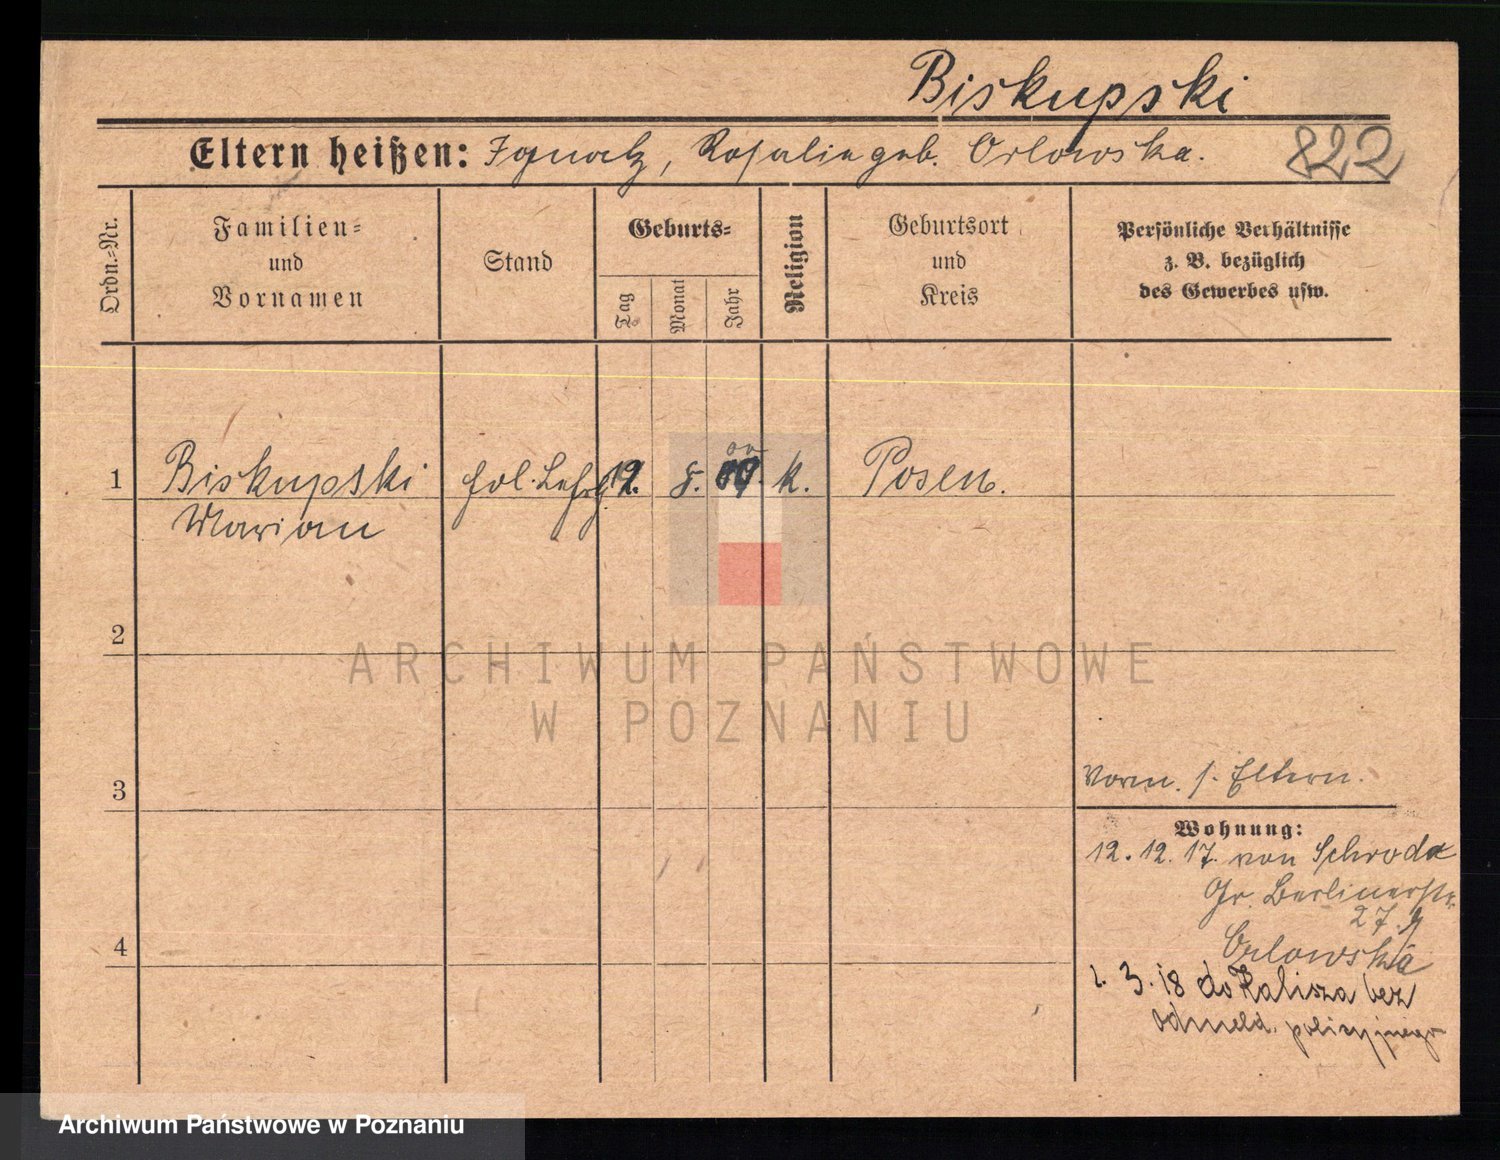 Biskupski
Eltern heißen: Ignatz, Rosalie geb. Orlowska.
822
Ordn.-Nr.
Familien-
und
Vornamen
Stand
Geburts-
Tag
Monat
Jahr
Religion
Geburtsort
und
Kreis
Persönliche Verhältnisse
z. B. bezüglich
des Gewerbes usw.
1
Biskupski
Marian
12. 8. k.
Posen.
2
3
4
Vorm. s. Eltern.
Wohnung:
12. 12. 17. von Schroda
Gr. Berlinerstr.
27
Orlowska
1. 3. 18 do Kalisza bez
odmeld. policyjnego
ARCHIWUM PAŃSTWOWE
W POZNANIU
Archiwum Państwowe w Poznaniu